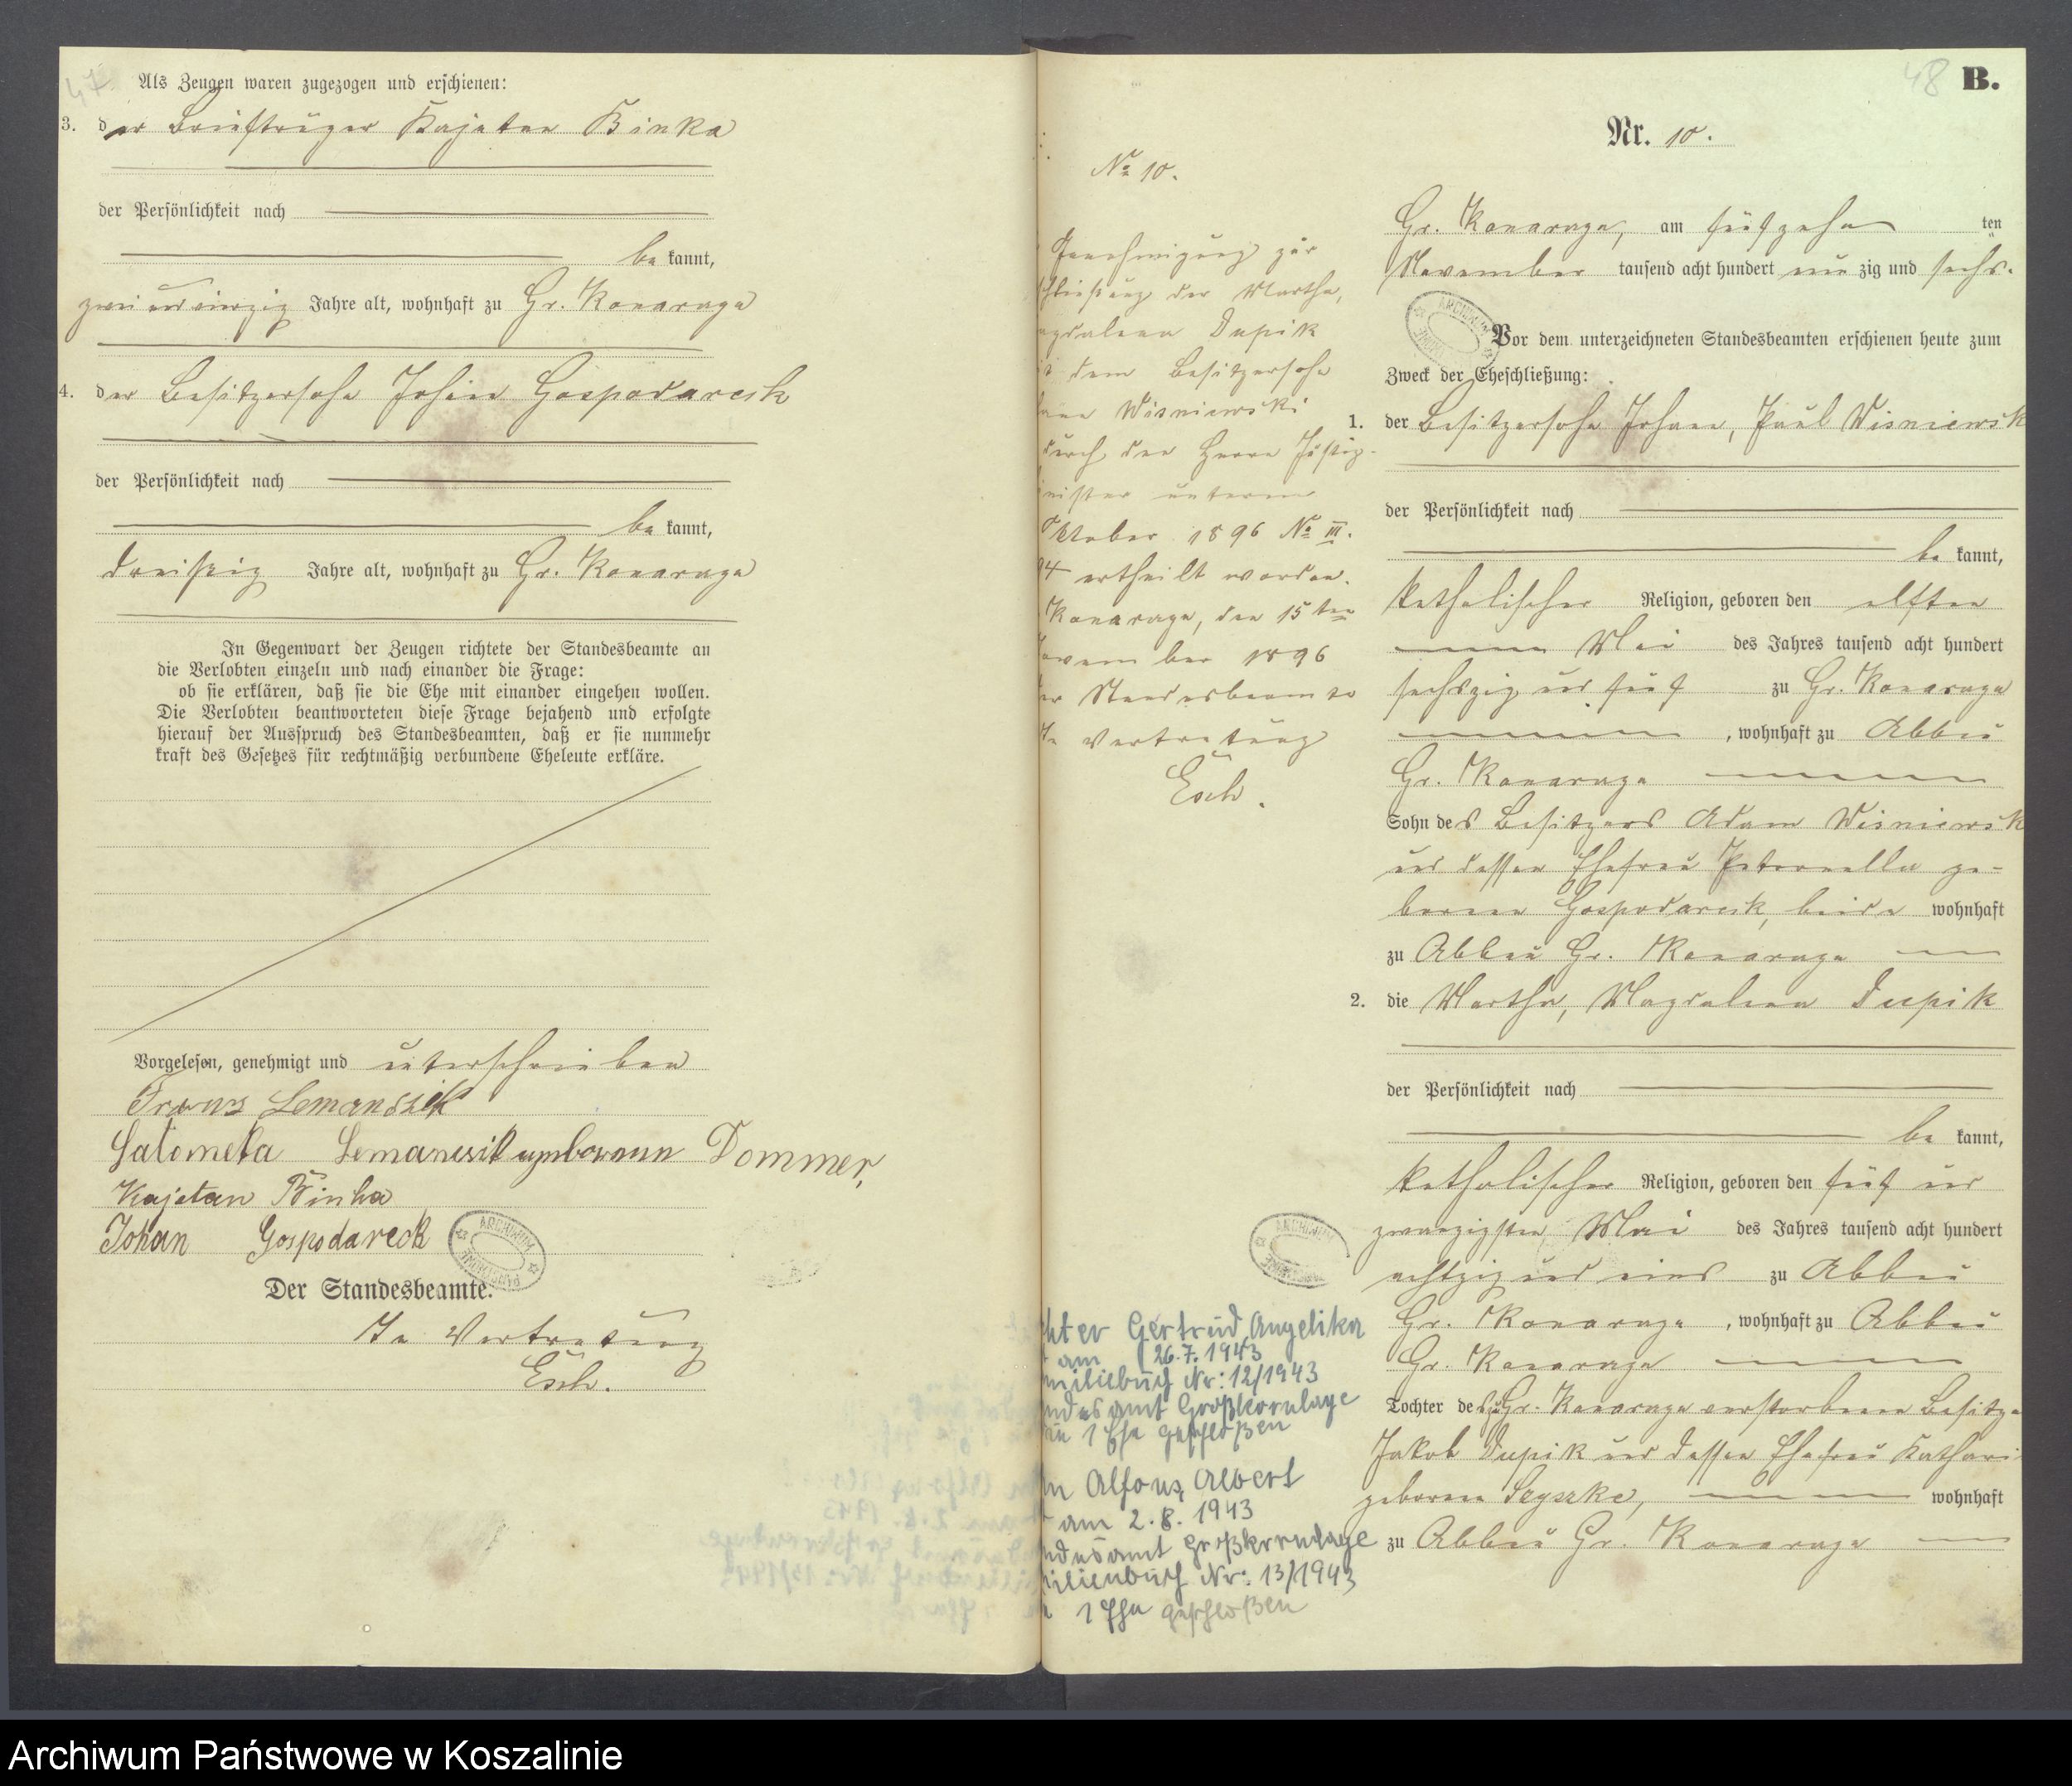 47
Als Zeugen waren zugezogen und erschienen:
3. der Briefträger Kajetan Binka
der Persönlichkeit nach
bekannt,
zwei und vierzig Jahre alt, wohnhaft zu Gr. Konarzyn
4. der Besitzersohn Johann Gospodareck
der Persönlichkeit nach
bekannt,
dreißig Jahre alt, wohnhaft zu Gr. Konarzyn
In Gegenwart der Zeugen richtete der Standesbeamte an
die Verlobten einzeln und nach einander die Frage:
ob sie erklären, daß sie die Ehe mit einander eingehen wollen.
Die Verlobten beantworteten diese Frage bejahend und erfolgte
hierauf der Ausspruch des Standesbeamten, daß er sie nunmehr
kraft des Gesetzes für rechtmäßig verbundene Eheleute erkläre.
Vorgelesen, genehmigt und unterschrieben
Franz Lemanszik
Salomeka Lemanczik Dommer,
Kajetan Binka
Johan Gospodareck
Der Standesbeamte.
In Vertretung
Esch.
No 10.
Genehmigung zur
schließung der Martha,
agdalena Dupik
dem Besitzersohn
Wisniewski
durch den Herrn Justiz-
nister unterm
Oktober 1896 No III.
4 ertheilt worden.
Konarzyn, den 15ten
ovember 1896
er Standesbeamte
In Vertretung
Esch.
hter Gertrud, Angelika
am 26.7.1943
miliebuch Nr: 12/1943
ndesamt Großkornlage
1 Ehe geschloßen
Alfons, Albert
am 2.8.1943
ndesamt Großkornlage
ilienbuch Nr: 13/1943
1 Ehe geschloßen
48 B.
Nr. 10.
Gr. Konarzyn, am fünfzehn ten
November tausend acht hundert neunzig und sechs.
Vor dem unterzeichneten Standesbeamten erschienen heute zum
Zweck der Eheschließung:
1. der Besitzersohn Johann, Paul Wisniewsk
der Persönlichkeit nach
bekannt,
katholischer Religion, geboren den elften
Mai des Jahres tausend acht hundert
sechszig und fünf zu Gr. Konarzyn
, wohnhaft zu Abbau
Gr. Konarzyn
Sohn des Besitzers Adam Wisniewsk
und dessen Ehefrau Petronella ge-
borenen Gospodareck, beide wohnhaft
zu Abbau Gr. Konarzyn
2. die Martha, Magdalena Dupik
der Persönlichkeit nach
bekannt,
katholischer Religion, geboren den fünf und
zwanzigsten Mai des Jahres tausend acht hundert
achtzig und eins zu Abbau
Gr. Konarzyn, wohnhaft zu Abbau
Gr. Konarzyn
Tochter des zu Gr. Konarzyn verstorbenen Besitze
Jakob Dupik und dessen Ehefrau Kathari
geborene wohnhaft
zu Abbau Gr. Konarzyn
ARCHIWUM PAŃSTWOWE
Archiwum Państwowe w Koszalinie